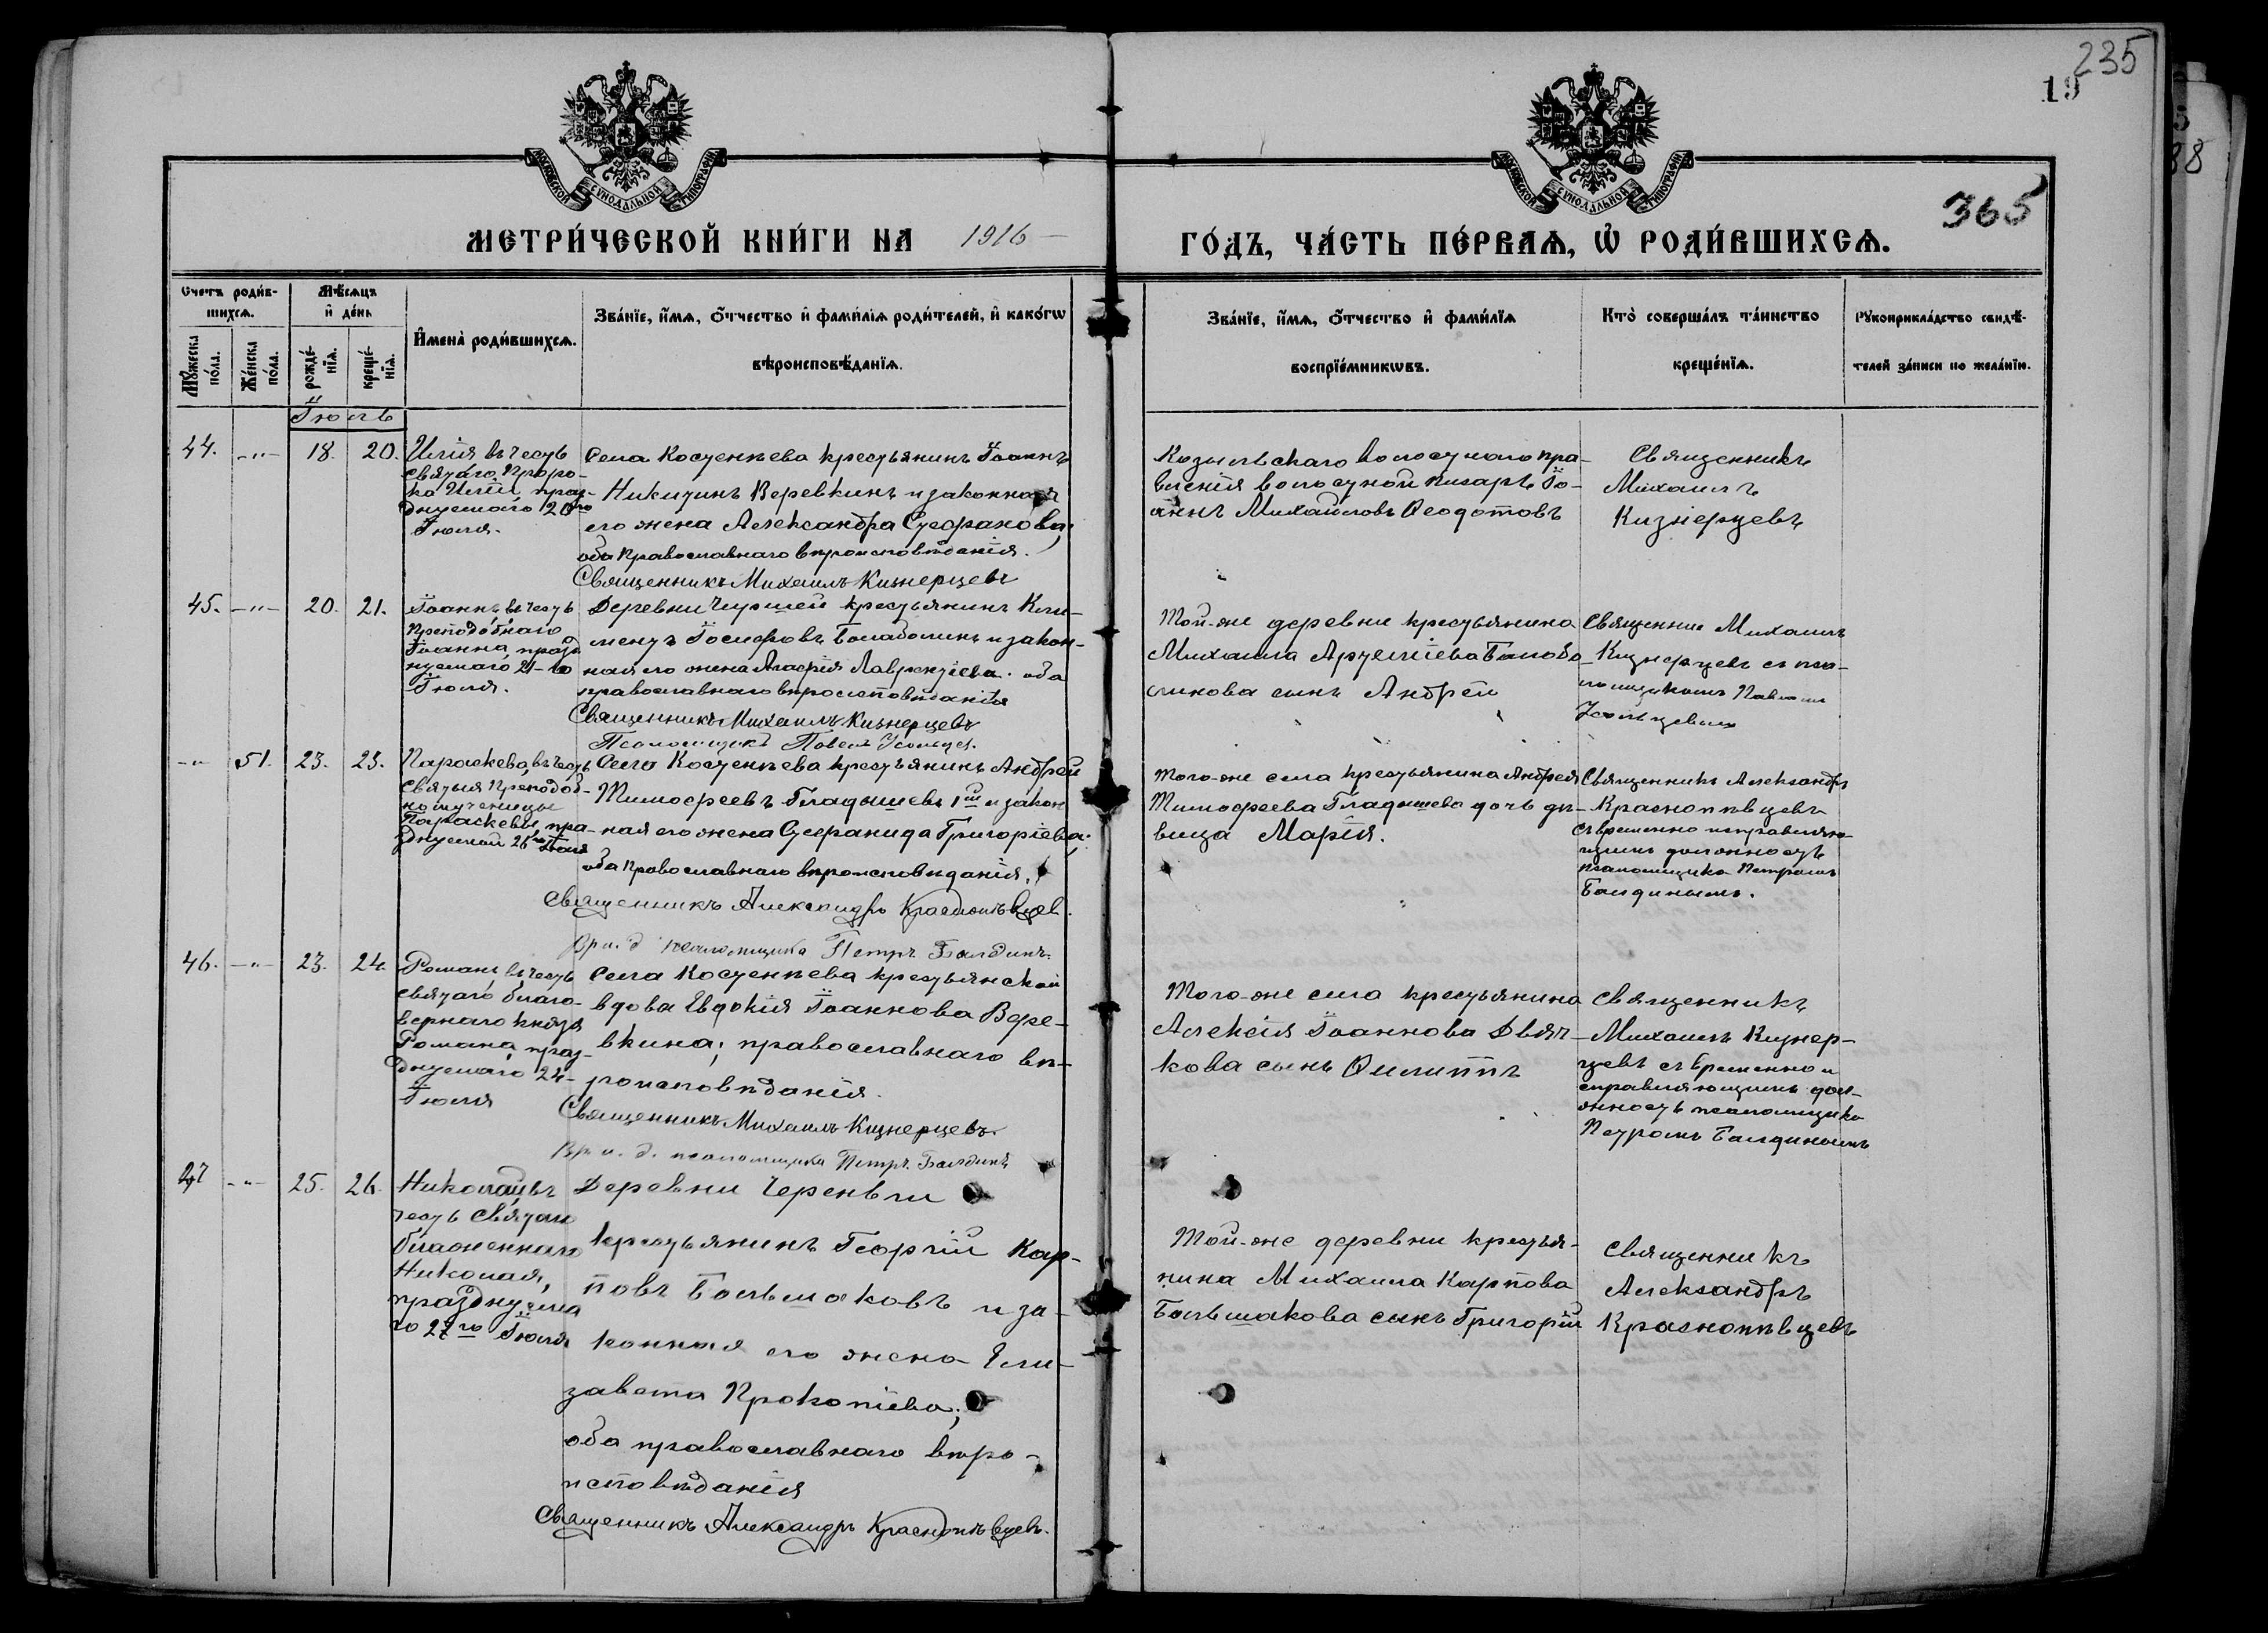 235
19
365
МОСКОВСКОЙ СѴНОДАЛЬНОЙ ТИПОГРАФІИ
МОСКОВСКОЙ СѴНОДАЛЬНОЙ ТИПОГРАФІИ
МЕТРИ́ЧЕСКОЙ КНИ́ГИ НА 1916
ГО́ДЪ, ЧА́СТЬ ПЕ́РВАѦ, Ѡ҆ РОДИ́ВШИХСѦ.
Счетъ роди́в-
шихсѧ.
Мѹ́жеска
по́ла.
Же́нска
по́ла.
Мѣ́сѧцъ
и҆ де́нь
рожде́-
нїѧ.
креще́-
нїѧ.
И҆мена̀ роди́вшихсѧ.
Зва́нїе, и҆́мѧ, ѻ҆́тчество и҆ фами́лїѧ роди́телей, и҆ како́гѡ
вѣроисповѣ́данїѧ.
Зва́нїе, и҆́мѧ, ѻ҆́тчество и҆ фами́лїѧ
воспрїе́мникѡвъ.
Кто̀ соверша́лъ та́инство
креще́нїѧ.
Рꙋкоприкла́дство свидѣ́-
телей за́писи по жела́нїю.
Іюль
44. -"- 18. 20.
Илія въ честь
святаго Проро-
ка Иліи, праз-
днуемаго 20го
Іюля.
Села Костенеева крестьянинъ Іоаннъ
Никитинъ Веревкинъ и законная
его жена Александра Стефанова;
оба Православнаго вѣроисповѣданія.
Священникъ Михаилъ Кизнерцевъ
Козыльскаго волостнаго пра-
вленія волостной писарь Іо-
аннъ Михайловъ Ѳеодотовъ
Священникъ
Михаилъ
Кизнерцевъ
45. -"- 20. 21.
Іоаннъ, въ честь
Преподобнаго
Іоанна, празд
нуемаго 21-го
Іюля.
Деревни крестьянинъ Кли-
ментъ Іосифовъ и закон-
ная его жена Агафія Лаврентіева. оба
православнаго вѣроисповѣданія
Священникъ Михаилъ Кизнерцевъ
Псаломщикъ Павелъ Усольцев.
Той-же деревни крестьянина
Михаила
сынъ Андрей
Священник Михаилъ
Кизнерцевъ съ пса-
ломщикомъ Павлом
Усольцевымъ
-"- 51. 23. 23.
Параскева, въ честь
святыя Преподоб-
номученицы
Параскевы, пра-
зднуемой 26го Іюля
Села Костенеева крестьянинъ Андрей
Тимофеевъ Гладышевъ 1й и закон
ная его жена Стефанида Григоріева;
оба Православнаго вѣроисповѣданія.
Священникъ Александръ Краснопѣвцев.
Вр. и. д. псаломщика Петръ Балдинъ.
Того-же села крестьянина Андрея
Тимофеева Гладышева дочь дѣ-
вица Марія.
Священникъ Александръ
Краснопѣвцевъ
съ временно исправляю-
щимъ должность
псаломщика Петромъ
Балдинымъ.
46. -"- 23. 24.
Романъ, въ честь
святаго благо-
вернаго князя
Романа, праз-
днуемаго 24-
Іюля
Села Костенеева крестьянской
вдова Евдокія Іоаннова Вере-
вкина; православнаго вѣ-
роисповѣданія.
Священникъ Михаилъ Кизнерцевъ.
Вр. и. д. псаломщика Петръ Балдинъ
Того-же села крестьянина
Алексія Іоаннова Двят-
кова сынъ Филиппъ
Священникъ
Михаилъ Кизнер-
цевъ съ временно и
справляющимъ дол-
жность псаломщика
Петромъ Балдинымъ
47 -"- 25. 26.
Николай, въ
честь святаго
блаженнаго
Николая,
празднуема
го 27го Іюля
Деревни
крестьянинъ Георгій Кар-
повъ Большаковъ и за-
конная его жена Ели-
завета Прокопіева;
оба православнаго вѣро-
исповѣданія
Священникъ Александръ Краснопѣвцевъ.
Той-же деревни крестья-
нина Михаила Карпова
Большакова сынъ Григорій
Священникъ
Александръ
Краснопѣвцевъ